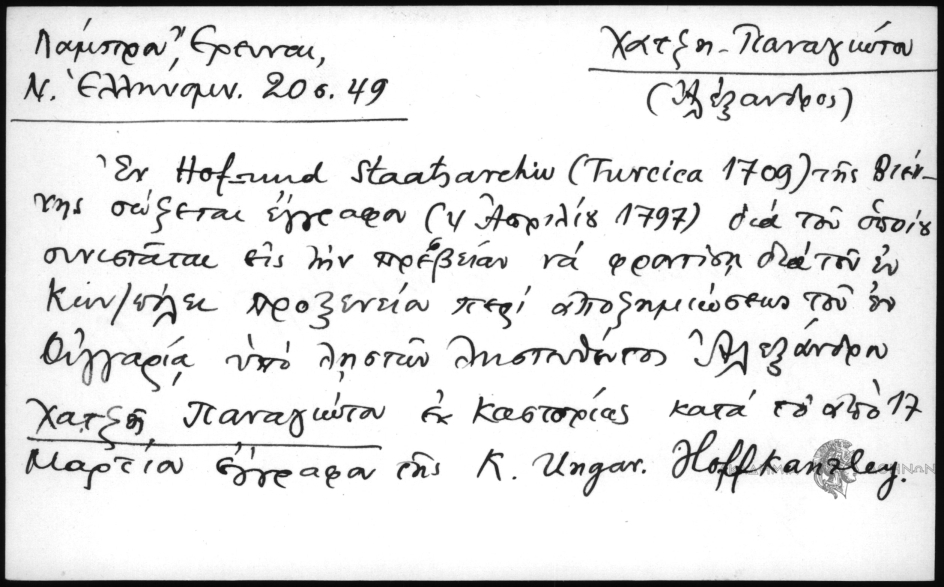 Λάμπρου, Έρευναι,
Ν. Ἑλληνομν. 20 σ. 49
Χατζῆ-Παναγιώτου
(Ἀλέξανδρος)
Ἐν Hof-und Staatsarchiv (Turcica 1709) τῆς Βιέν-
νης σώζεται ἔγγραφον (4 Ἀπριλίου 1797) διά τοῦ ὁποίου
συνιστᾶται εἰς τήν πρεσβείαν νά φροντίσῃ διά τοῦ ἐν
Κων/πόλει προξενείου περί ἀποζημιώσεως τοῦ ἐν
Οὐγγαρίᾳ ὑπό λῃστῶν λῃστευθέντος Ἀλεξάνδρου
Χατζῆ Παναγιώτου ἐκ Καστοριᾶς κατά τό ἀπό 17
Μαρτίου ἔγγραφον τῆς K. Ungar. Hoffkanzley.